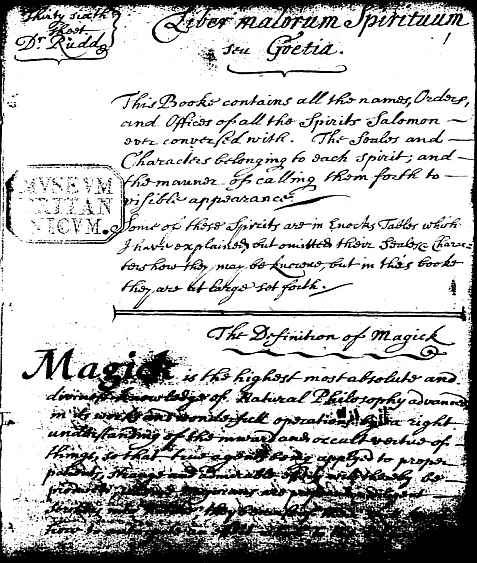 Thirty sixth
Sheet
Dr Rudd
Liber malorum Spirituum
seu Goetia.
This Booke contains all the names, Orders,
and Offices of all the Spirits Salomon
ever conversed with. The Seales and
Characters belonging to each spirit; and
the manner of calling them forth to
visible appearance
MVSEVM
BRITAN
NICVM.
Some of these Spirits are in Enochs Tables which
I have explained, but omitted their Seales & Charac-
ters how they may be knowne, but in this booke
they are at large set forth.
The Definition of Magick
Magick is the highest most absolute and
divinest knowledge of Natural Philosophy advanced
in its works and wonderfull operations by a right
understanding of the inward and occult vertue of
things, so that true agents being applyed to proper
patients, strange and admirable effects will thereby be